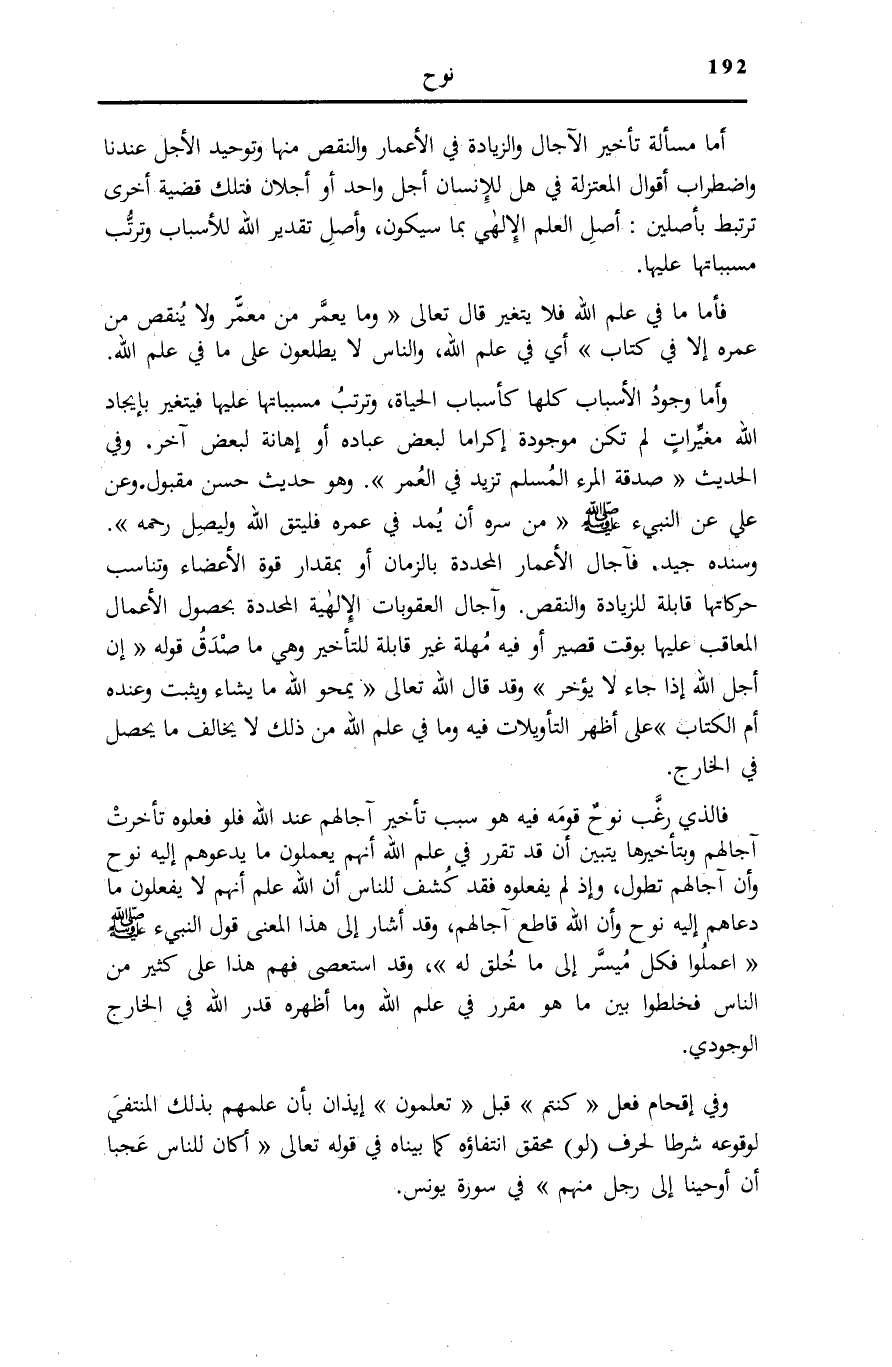 192
نوح
أما مسألة تأخير الآجال والزيادة في الأعمار والنقص منها وتوحيد الأجل عندنا
واضطراب أقوال المعتزلة في هل للإِنسان أجل واحد أو أجلان فتلك قضية أخرى
ترتبط بأصلين : أصلِ العلم الإِلهٰي بما سيكون، وأصلِ تقدير الله للأسباب وترتُّب
مسبباتها عليها.
فأما ما في علم الله فلا يتغير قال تعالى « وما يعمَّر من معمَّر ولا يُنقص من
عمره إلا في كتاب » أي في علم الله، والناس لا يطلعون على ما في علم الله.
وأما وجودُ الأسباب كلها كأسباب الحياة، وترتبُ مسبباتها عليها فيتغير بإيجاد
الله مغيِّراتٍ لم تكن موجودة إكراما لبعض عباده أو إهانة لبعض آخر. وفي
الحديث « صدقة المرء المُسلم تزيد في العُمر ». وهو حديث حسن مقبول.وعن
علي عن النبيء ﷺ « من سره أن يُمد في عمره فليتق الله وليصِل رحمه ».
وسنده جيد. فآجال الأعمار المحددة بالزمان أو بمقدار قوة الأعضاء وتناسب
حركاتها قابلة للزيادة والنقص. وآجال العقوبات الإِلهٰية المحددة بحصول الأعمال
المعاقب عليها بوقت قصير أو فيه مُهلة غير قابلة للتأخير وهي ما صْدَقُ قوله « إن
أجل الله إذا جاء لا يؤخر » وقد قال الله تعالى « يمحو الله ما يشاء ويثبت وعنده
أم الكتاب »على أظهر التأويلات فيه وما في علم الله من ذلك لا يخالف ما يحصل
في الخارج.
فالذي رغَّب نوحٌ قومَه فيه هو سبب تأخير آجالهم عند الله فلو فعلوه تأخرتْ
آجالهم وبتأخيرها يتبين أن قد تقرر في علم الله أنهم يعملون ما يدعوهم إليه نوح
وأن آجالهم تطول، وإذ لم يفعلوه فقد كُشف للناس أن الله علم أنهم لا يفعلون ما
دعاهم إليه نوح وأن الله قاطع آجالهم، وقد أشار إلى هذا المعنى قول النبيء ﷺ
« اعملُوا فكل مُيسَّر إلى ما خُلق له »، وقد استعصى فهم هذا على كثير من
الناس فخلطوا بين ما هو مقرر في علم الله وما أظهره قدر الله في الخارج
الوجودي.
وفي إقحام فعل « كنتم » قبل « تعلمون » إيذان بأن علمهم بذلك المنتفيَ
لوقوعه شرطا لحرف (لو) محقق انتفاؤه كما بيناه في قوله تعالى « أكان للناس عَجبا
أن أوحينا إلى رجل منهم » في سورة يونس.